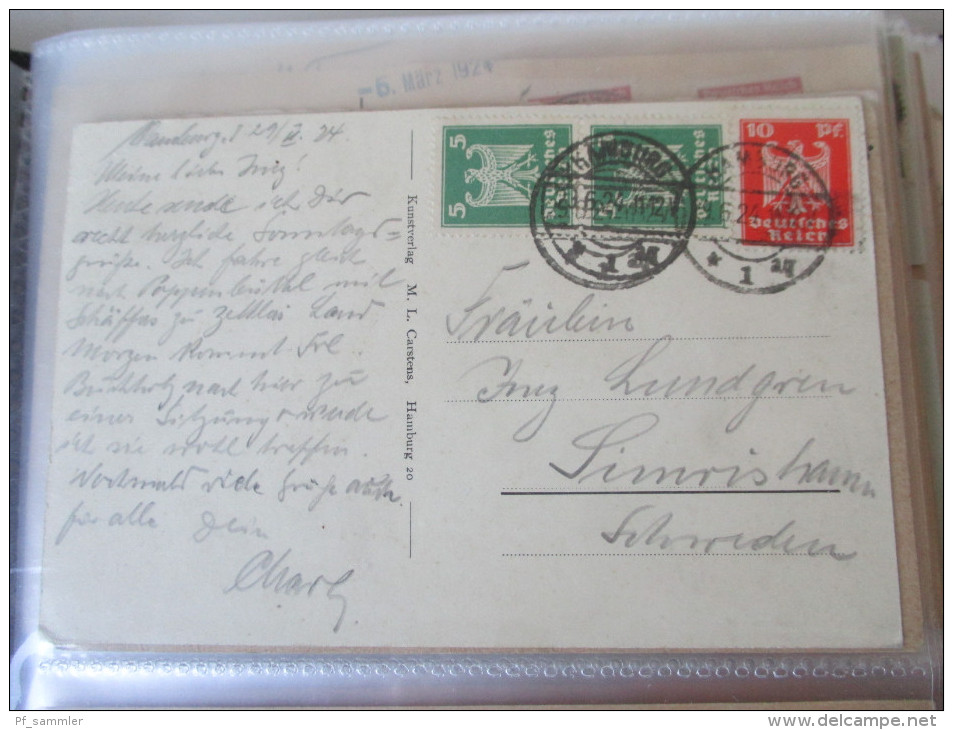 -6. März 1924
Hamburg, d 29/ 24.
Meine liebe Ing!
Heute sende ich Dir
recht herzliche Sonntags=
grüße. Ich fahre gleich
nach Poppenbüttel mit
zu Land
Morgen kommt Frl.
Buchholz nach hier zu
einer Sitzung werde
ich sie wohl treffen.
Nochmals viele Grüße auch
für alle Dein
Charly
Kunstverlag M. L. Carstens, Hamburg 20
5
5
10 Pf.
Deutsches
Reich
HAMBURG
★ 1
★ 1
Fräulein
Ing Lundgren
Simrishamn
Schweden
Pf_sammler
www.delcampe.net